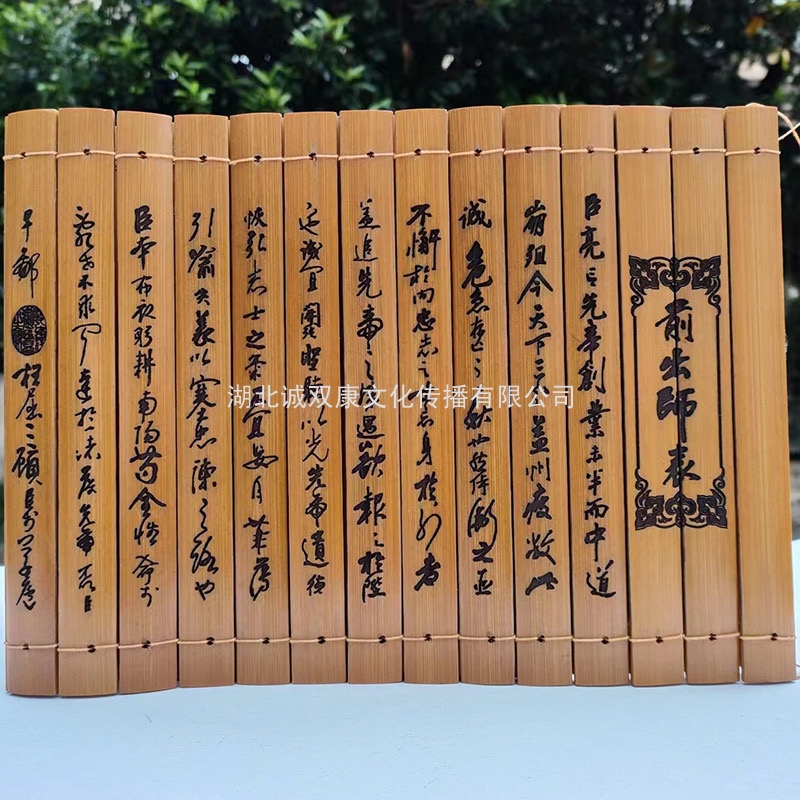 前出師表
臣亮言先帝創業未半而中道
崩殂今天下三分益州疲敝此
誠危急存亡之秋也然侍衛之臣
不懈於內忠志之士忘身於外者
蓋追先帝之殊遇欲報之於陛
下誠宜開張聖聽以光先帝遺德
恢弘志士之氣不宜妄自菲薄
引喻失義以塞忠諫之路也
臣本布衣躬耕南陽苟全性命於
亂世不求聞達於諸侯先帝不以臣
卑鄙枉屈三顧臣於草廬
湖北诚双康文化传播有限公司